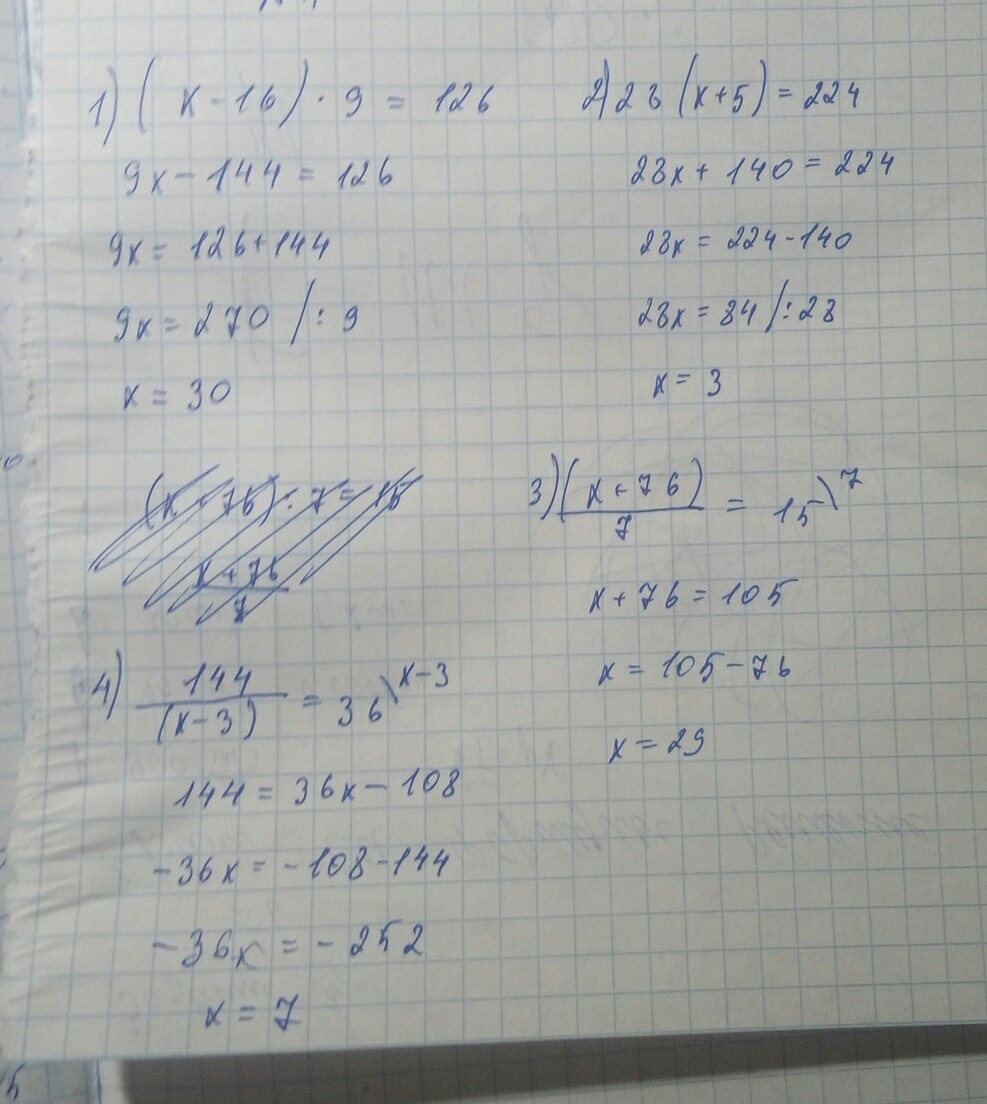 1) (x-16) · 9 = 126
9x - 144 = 126
9x = 126+144
9x = 270 /: 9
x = 30
2) 28 (x+5) = 224
28x + 140 = 224
28x = 224-140
28x = 84 /: 28
x = 3
(x+76) : 7 = 15
x+76
7
3) (x+76)
7
= 15\7
x+76 = 105
x = 105-76
x = 29
4) 144
(x-3)
= 36\x-3
144 = 36x - 108
-36x = -108-144
-36x = -252
x = 7